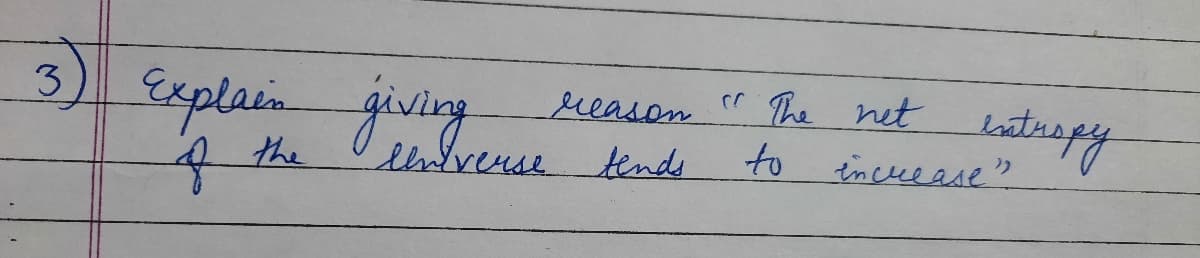 3) Explain giving reason "The net entropy
of the universe tends to increase"